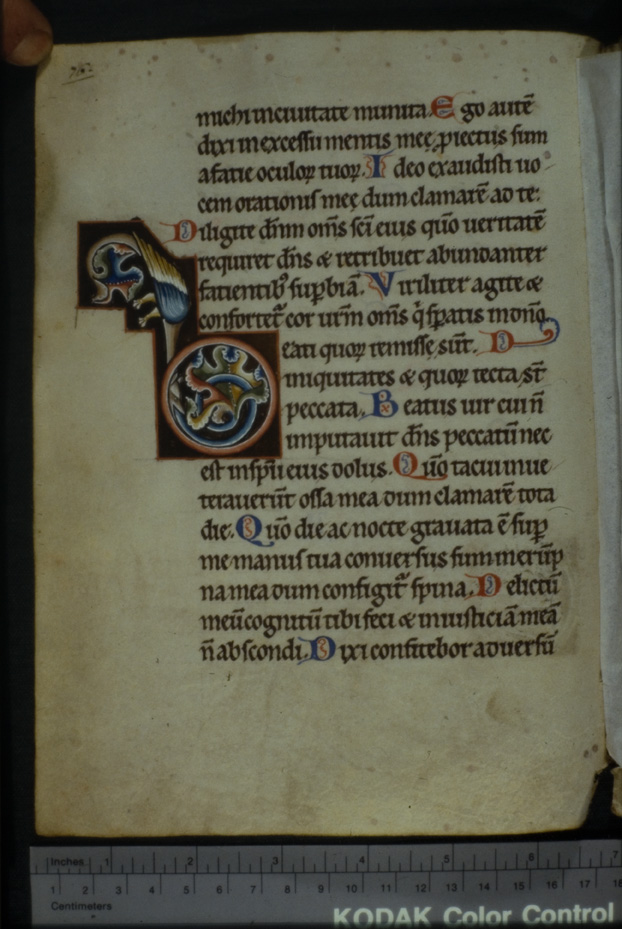 michi in ciuitate munita. Ego autē
dixi in excessu mentis meę, ꝓiectus sum
a facie oculoꝝ tuoꝝ. Ideo exaudisti uo
cem orationis meę dum clamarē ad te.
Diligite dn̄m om̄s sc̄i eius qūo ueritatē
requiret dn̄s & retribuet abundanter
facientibꝰ suꝑbiā. Viriliter agite &
confortet᷑ cor ur̄m om̄s q̇ sꝑatis in dn̄o.
Beati quoꝝ remissę sūt.
iniquitates & quoꝝ tecta st̄
peccata. Beatus uir cui n̄
imputauit dn̄s peccatū nec
est in sp̄u eius dolus. Qūo tacui inue
terauerūt ossa mea dum clamarē tota
die. Qūo die ac nocte grauata ē suꝑ
me manus tua conuersus sum in erūp
na mea dum configit᷑ spina. Delictū
meū cognitū tibi feci & iniusticiā meā
n̄ abscondi. Dixi confitebor aduersū
Inches 1 2 3 4 5 6 7
1 2 3 4 5 6 7 8 9 10 11 12 13 14 15 16 17 18
Centimeters
KODAK Color Control